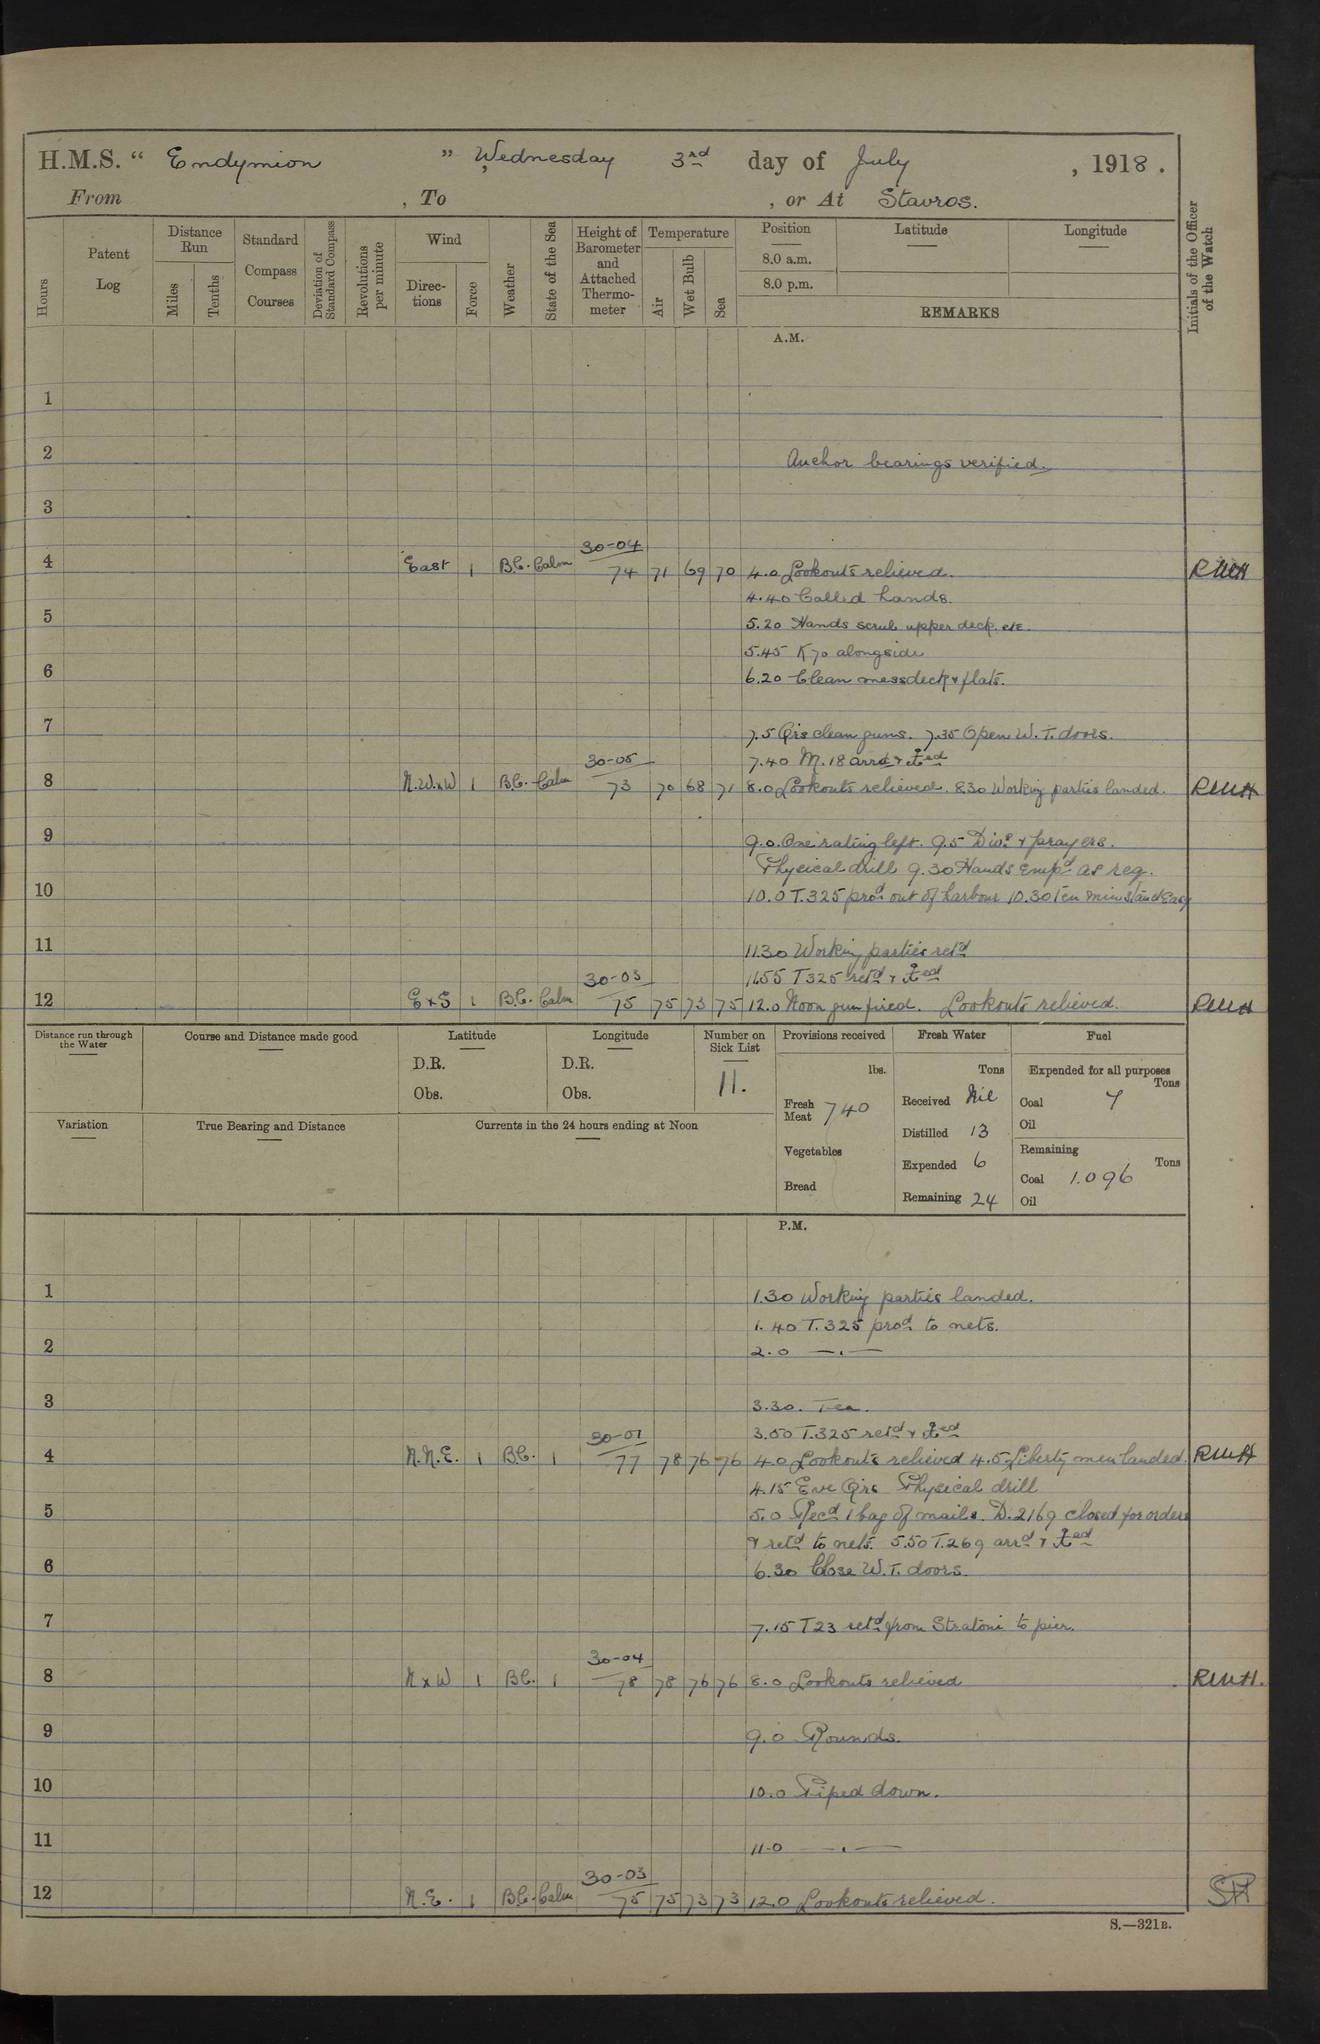 H.M.S. " Endymion " , Wednesday 3rd day of July , 1918 .
From , To , or At Stavros.
Hours
Patent Log
Distance Run
Miles
Tenths
Standard Compass Courses
Deviation of Standard Compass
Revolutions per minute
Wind
Directions
Force
Weather
State of the Sea
Height of Barometer and Attached Thermometer
Temperature
Air
Wet Bulb
Sea
Position
8.0 a.m.
8.0 p.m.
Latitude
Longitude
REMARKS
Initials of the Officer of the Watch
A.M.
1
2 Anchor bearings verified.
3
30-04
4 East 1 B.C. Calm 74 71 69 70 4.0 Lookouts relieved. RWH
4.40 Called hands.
5 5.20 Hands scrub upper deck. etc.
5.45 K70 alongside
6 6.20 Clean messdeck & flats.
7 7.5 Qrs clean guns. 7.35 Open W.T. doors.
30-05 7.40 M.18 arrd & ⚓ed
8 N.W.xW 1 B.C. Calm 73 70 68 71 8.0 Lookouts relieved. 8.30 Working parties landed. RWH
9 9.0. One rating left. 9.5 Divs & prayers.
Physical drill 9.30 Hands empd as req.
10 10.0 T.325 procd out of harbour 10.30 Ten mins Stand Easy
11 11.30 Working parties retd
30-03 11.55 T325 retd & ⚓ed
12 ExS 1 B.C. Calm 75 75 73 75 12.0 Noon gun fired. Lookouts relieved. RWH
Distance run through the Water
Course and Distance made good
Latitude
D.R.
Obs.
Longitude
D.R.
Obs.
Number on Sick List
11.
Provisions received
lbs.
Fresh Meat 740
Vegetables
Bread
Fresh Water
Tons
Received Nil
Distilled 13
Expended 6
Remaining 24
Fuel
Expended for all purposes
Tons
Coal 7
Oil
Remaining
Tons
Coal 1.096
Oil
Variation
True Bearing and Distance
Currents in the 24 hours ending at Noon
P.M.
1 1.30 Working parties landed.
1.40 T.325 procd to nets.
2 2.0 —.—
3 3.30. Tea.
30-01 3.50 T.325 retd & ⚓ed
4 N.N.E. 1 B.C. 1 77 78 76 76 4.0 Lookouts relieved 4.5 Liberty men landed. RWH
4.15 Eve Qrs Physical drill
5 5.0 Recd 1 bag of mails. D.2169 closed for orders
& retd to nets. 5.50 T.269 arrd & ⚓ed
6 6.30 Close W.T. doors.
7 7.15 T23 retd from Stratoni to pier.
30-04
8 NxW 1 B.C. 1 78 78 76 76 8.0 Lookouts relieved RWH.
9 9.0 Rounds.
10 10.0 Piped down.
11 11.0 —.—
30-03
12 N.E. 1 B.C. Calm 75 75 73 73 12.0 Lookouts relieved.
S.—321B.